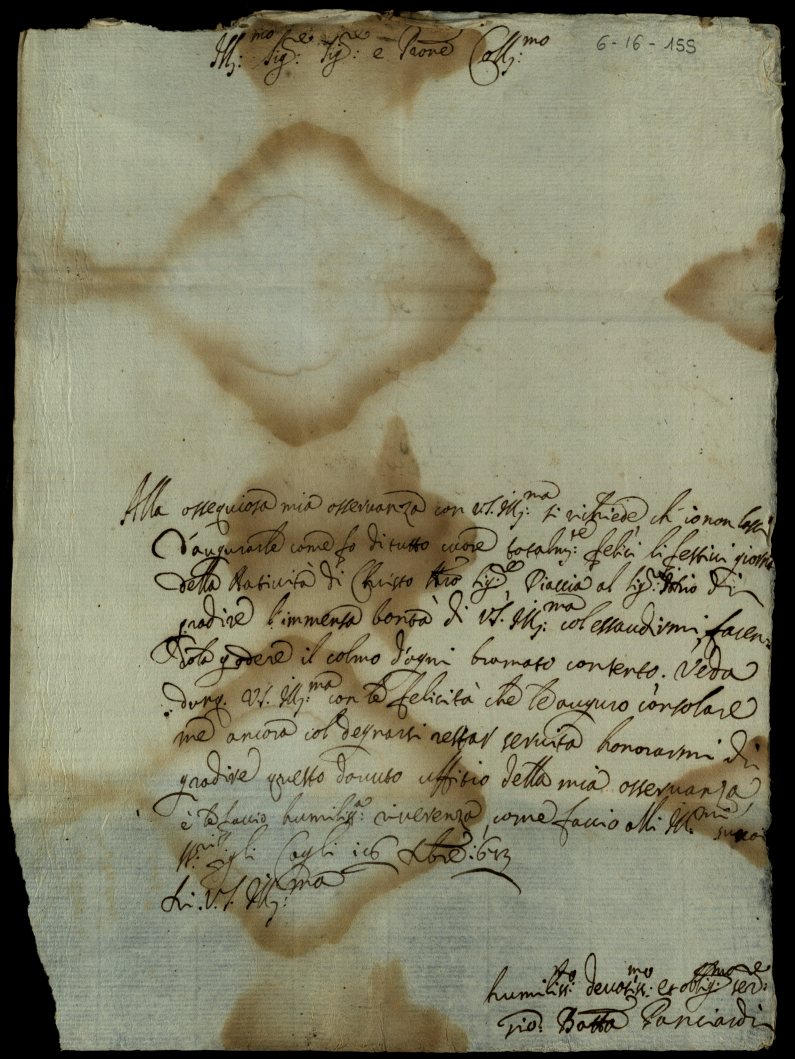 Ill:mo Sig:re Sig:re e Prone Coll:mo
6-16-155
Alla ossequiosa mia osservanza con VS. Ill:ma si richiede, ch'io non lassi
d'augurarle come fo di tutto cuore totalm:te felici li festivi giorni
della Natività di Christo Nro Sig:re Piaccia al Sig:re Iddio di
gradire l'immensa bontà di VS. Ill:ma col essaudirmi, facen-
dola godere il colmo d'ogni bramato contento. Veda
dunq. VS. Ill:ma con le felicità che le auguro consolare
me ancora col degnarsi restar servita honorarmi di
gradire questo dovuto uffitio della mia osservanza,
e le faccio humiliss:a riverenza, come faccio alli Ill:mi suoi
SS:ri figli Cagli 16 Xbre 16
Di V.S. Ill:ma
humiliss:o devotiss:mo et oblig:mo ser:e
Gio: Batta Panciardi